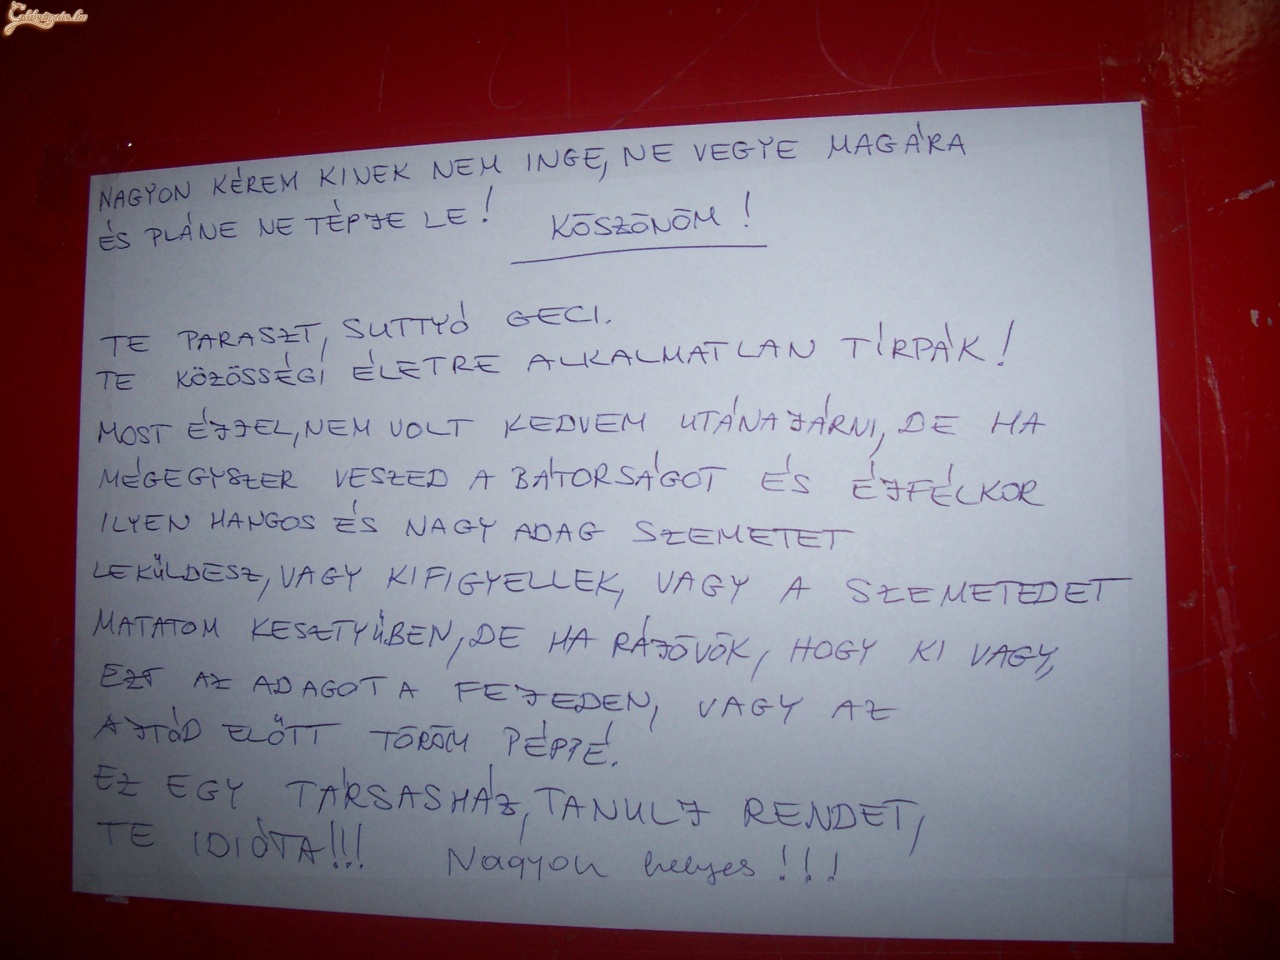 NAGYON KÉREM KINEK NEM INGE, NE VEGYE MAGÁRA
ÉS PLÁNE NE TÉPJE LE! KÖSZÖNÖM!
TE PARASZT, SUTTYÓ GECI.
TE KÖZÖSSÉGI ÉLETRE ALKALMATLAN TÍRPÁK!
MOST ÉJJEL, NEM VOLT KEDVEM UTÁNAJÁRNI, DE HA
MÉGEGYSZER VESZED A BÁTORSÁGOT ÉS ÉJFÉLKOR
ILYEN HANGOS ÉS NAGY ADAG SZEMETET
LEKÜLDESZ, VAGY KIFIGYELLEK, VAGY A SZEMETEDET
MATATOM KESZTYŰBEN, DE HA RÁJÖVÖK, HOGY KI VAGY,
EZT AZ ADAGOT A FEJEDEN, VAGY AZ
AJTÓD ELŐTT TÖRÖM PÉPPÉ.
EZ EGY TÁRSASHÁZ, TANULJ RENDET,
TE IDIÓTA!!! Nagyon helyes!!!